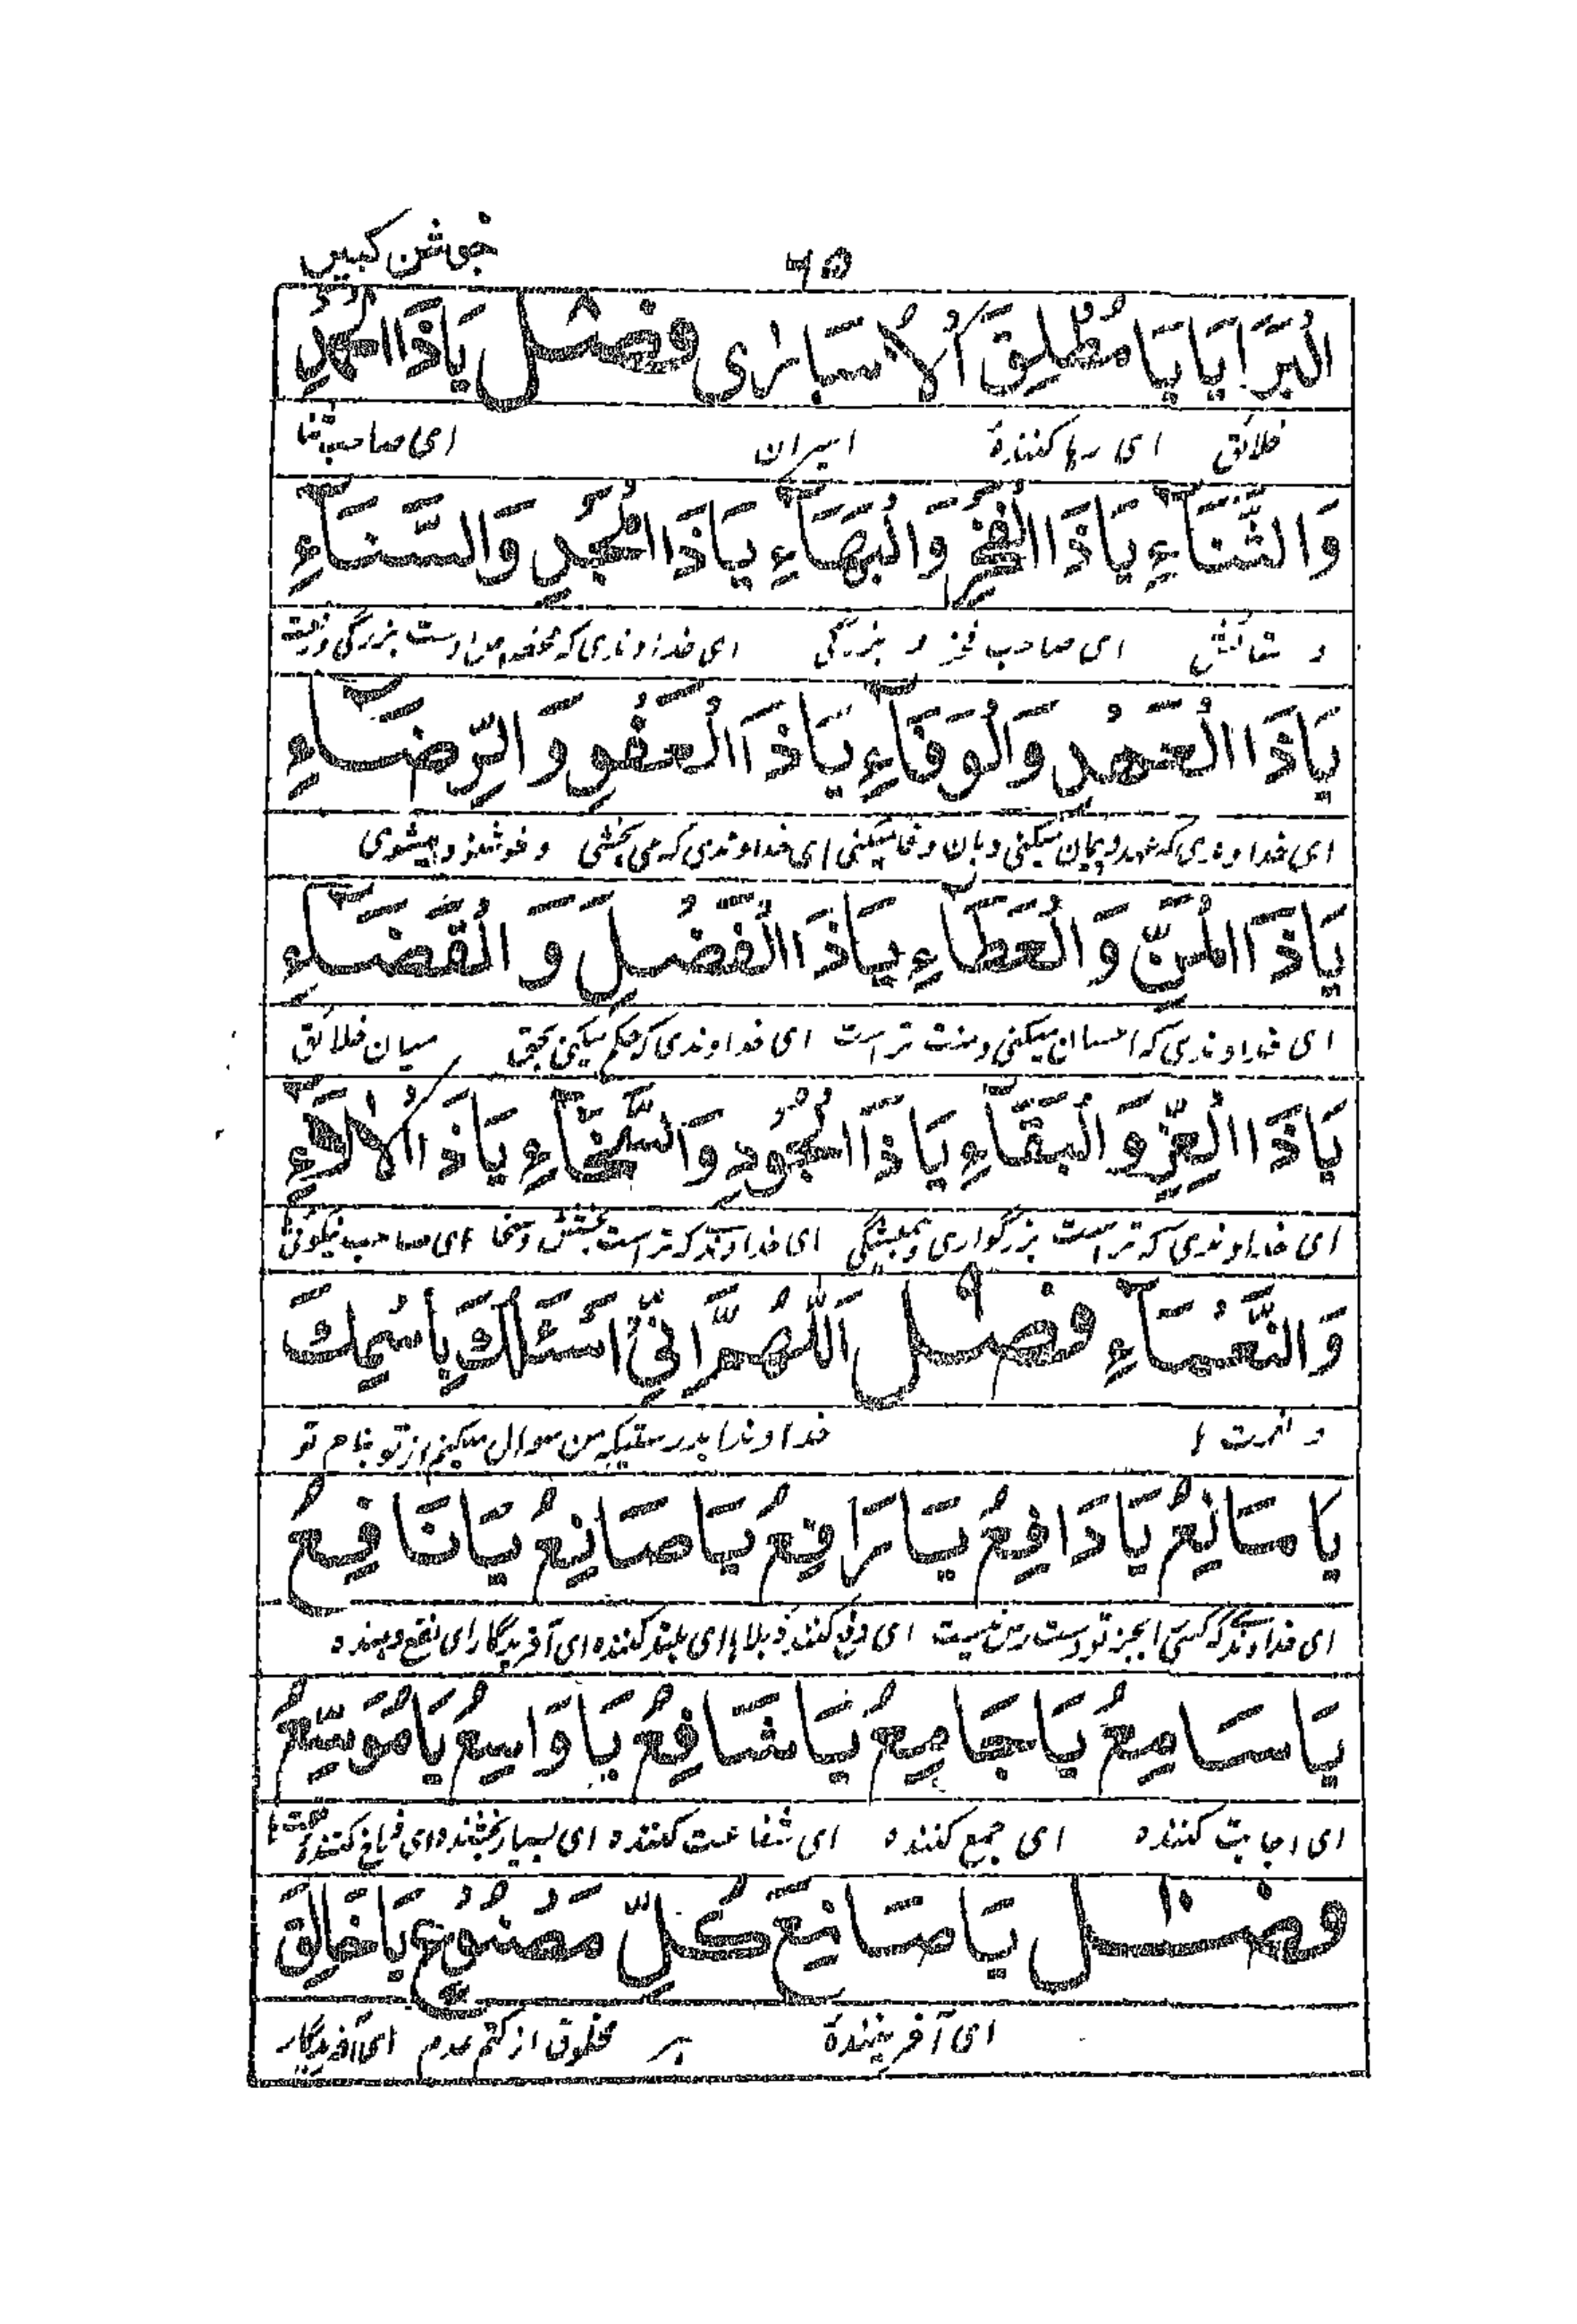 جوشن کبیر
۶۵
الْبَرَایَا یَا مُطْلِقَ الْأُسَارٰی فصل ۸ یَا ذَا الْحَمْدِ
خلائق ای رها کنندهٔ اسیران ای صاحب ثنا
وَالثَّنَاءِ یَا ذَا الْفَخْرِ وَالْبَهَاءِ یَا ذَا الْمَجْدِ وَالسَّنَاءِ
و ستائش ای صاحب فخر و بزرگی ای خداوندی که بزرگی
یَا ذَا الْعَهْدِ وَالْوَفَاءِ یَا ذَا الْعَفْوِ وَالرِّضَاءِ
ای خداوندی که عهد و پیمان میکنی و بان وفا میکنی ای خداوندی که می بخشی و خوشنود میشوی
یَا ذَا الْمَنِّ وَالْعَطَاءِ یَا ذَا الْفَضْلِ وَالْقَضَاءِ
ای خداوندی که احسان میکنی و منت تراست ای خداوندی که حکم میکنی بحق میان خلائق
یَا ذَا الْعِزِّ وَالْبَقَاءِ یَا ذَا الْجُودِ وَالسَّخَاءِ یَا ذَا الْاٰلَاءِ
ای خداوندی که تراست بزرگواری و همیشگی ای خداوندی که تراست بخشش و سخا ای صاحب نیکوئی
وَالنَّعْمَاءِ فصل ۹ اَللّٰهُمَّ اِنِّی اَسْئَلُكَ بِاسْمِكَ
خداوندا بدرستیکه من سوال میکنم از تو بنام تو
یَا مَانِعُ یَا دَافِعُ یَا رَافِعُ یَا صَانِعُ یَا نَافِعُ
ای خداوندی که کسی بجز تو نیست ای دفع کننده بلاها ای بلند کننده ای آفریدگار ای نفع دهنده
یَا سَامِعُ یَا جَامِعُ یَا شَافِعُ یَا وَاسِعُ یَا مُوَسِّعُ
ای اجابت کننده ای جمع کننده ای شفاعت کننده ای بسیار بخشنده ای فراخ کننده
فصل ۱۰ یَا صَانِعَ کُلِّ مَصْنُوعٍ یَا خَالِقَ
ای آفرینندهٔ هر مخلوق از کتم عدم ای آفریدگار